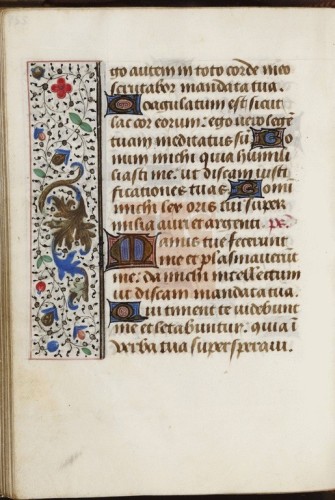 go autem in toto corde meo
scrutabor mandata tua.
Coagulatum est sicut
lac cor eorum: ego vero legē
tuam meditatus sū. Bo
num michi quia humili
asti me. ut discam iusti
ficationes tuas. Bonū
michi lex oris tui super
milia auri et argenti. ps.
Manus tue fecerunt
me et plasmaverunt
me. da michi intellectum
ut discam mandata tua.
Qui timent te videbunt
me et letabuntur. quia ī
verba tua supersperavi.